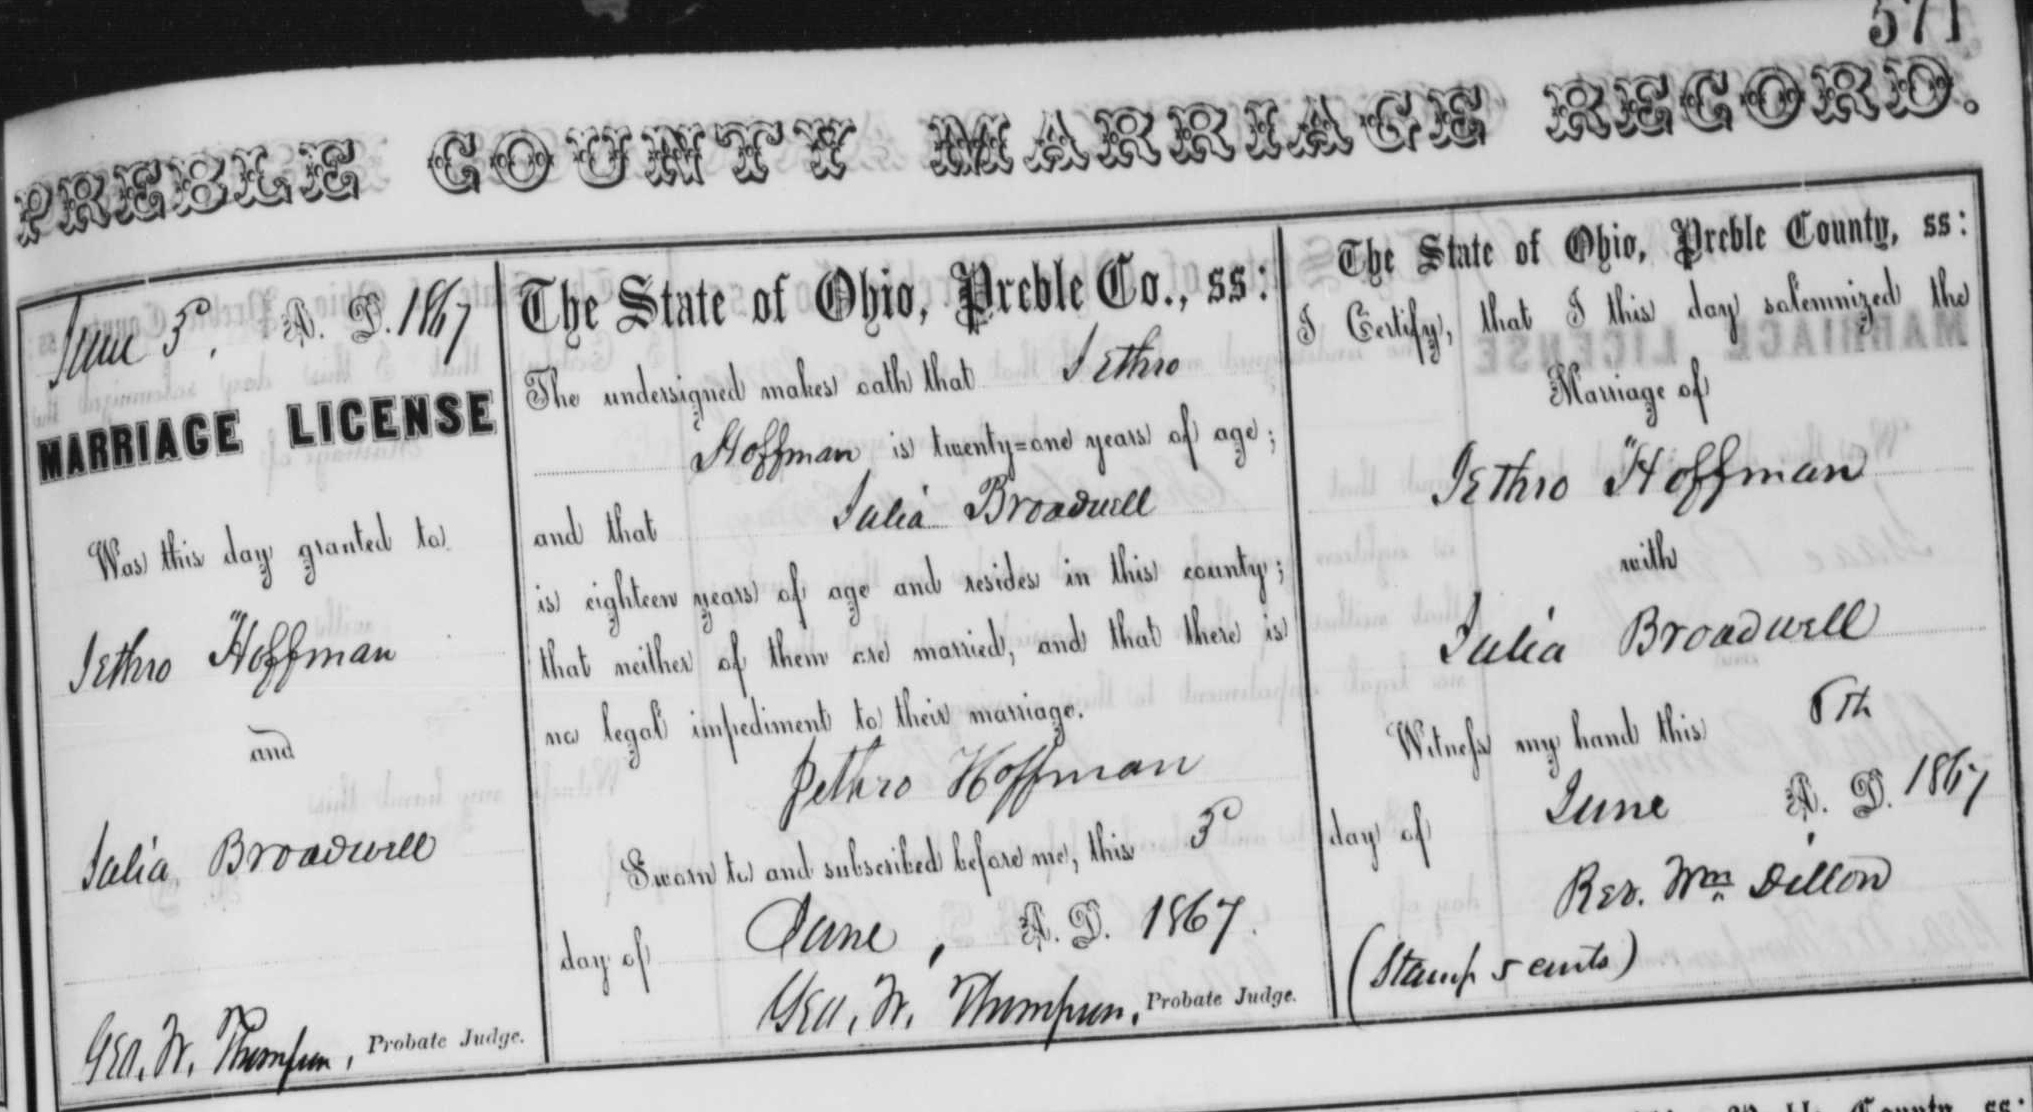 571
PREBLE COUNTY MARRIAGE RECORD.
June 5, A. D. 1867
MARRIAGE LICENSE
Was this day granted to
Jethro Hoffman
and
Julia Broadwell
Geo. W. Thompson, Probate Judge.
The State of Ohio, Preble Co., ss:
The undersigned makes oath that Jethro
Hoffman is twenty=one years of age;
and that Julia Broadwell
is eighteen years of age and resides in this county;
that neither of them are married, and that there is
no legal impediment to their marriage.
Jethro Hoffman
Sworn to and subscribed before me, this 5
day of June, A. D. 1867.
Geo. W. Thompson, Probate Judge.
The State of Ohio, Preble County, ss:
I Certify, that I this day solemnized the
Marriage of
Jethro Hoffman
with
Julia Broadwell
Witness my hand this 6th
day of June A. D. 1867
Rev. Wm Dillon
(Stamp 5 cents)
County, ss: